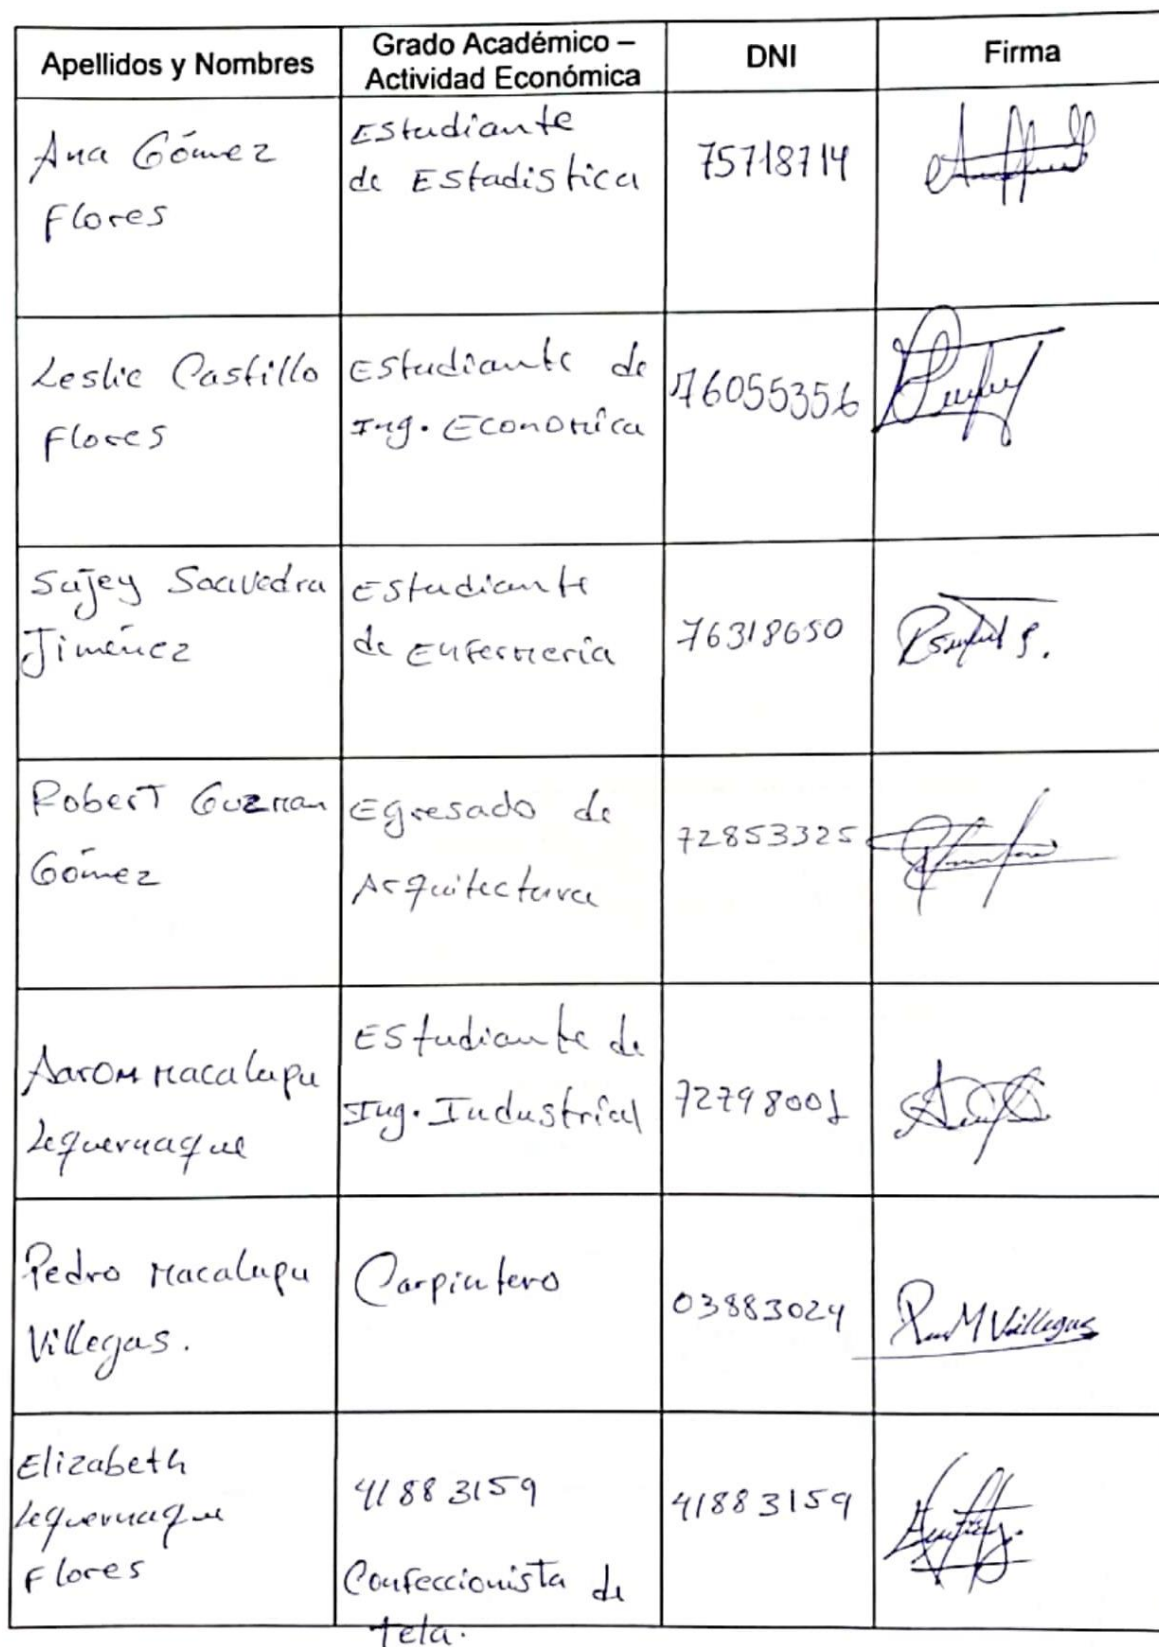 Apellidos y Nombres
Grado Académico –
Actividad Económica
DNI
Firma
Ana Gómez
Flores
Estudiante
de Estadistica
75718714
Leslie Castillo
Flores
Estudiante de
Ing. Economica
76055356
Sujey Saavedra
Jiménez
Estudiante
de Enfermeria
76318650
Robert Guzman
Gómez
Egresado de
Arquitectura
72853325
Aarom Macalupu
Lequernaque
Estudiante de
Ing. Industrial
72798001
Pedro Macalupu
Villegas.
Carpintero
03883024
Villegas
Elizabeth
Lequernaque
Flores
41883159
Confeccionista de
tela.
41883159